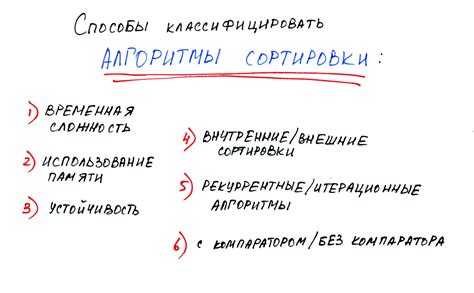 Способы классифицировать
АЛГОРИТМЫ СОРТИРОВКИ:
1) ВРЕМЕННАЯ
СЛОЖНОСТЬ
2) ИСПОЛЬЗОВАНИЕ
ПАМЯТИ
3) УСТОЙЧИВОСТЬ
4) ВНУТРЕННИЕ/ВНЕШНИЕ
СОРТИРОВКИ
5) РЕКУРРЕНТНЫЕ/ИТЕРАЦИОННЫЕ
АЛГОРИТМЫ
6) С КОМПАРАТОРОМ/БЕЗ КОМПАРАТОРА